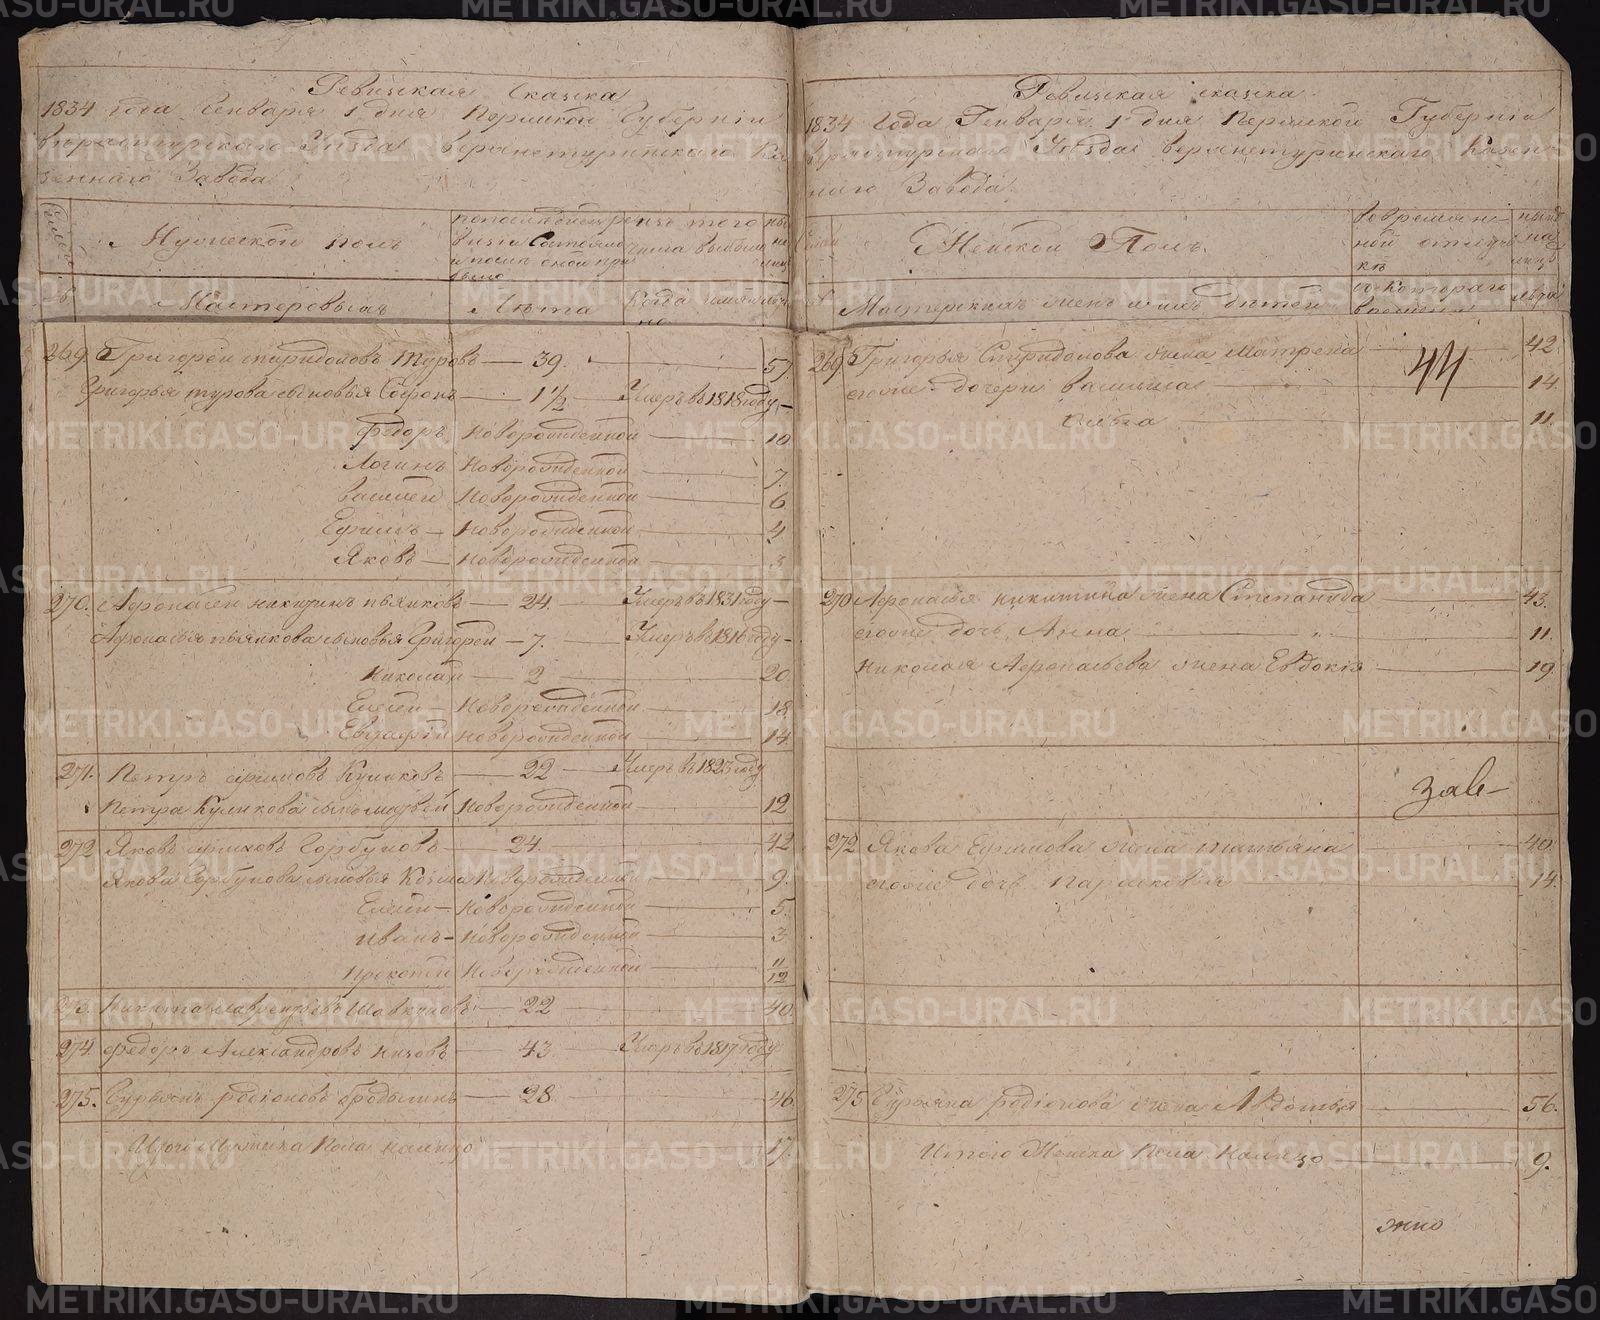 Ревизская Сказка
1834 года Генваря 1 дня Пермской Губернии
Верхотурского Уезда верхнетуринского Ка
зеннаго Завода
Мужеской полъ
по последней ре
визии Состояло
и после оной при
было
изъ того
числа выбыло
ны
не
на
лицо
№
Мастеровыя
Лѣта
Когда имян
но
лѣта
269. Григорей спиридоновъ Туровъ — 39. — 57
Григорья турова сыновья Софронъ — 1½ — Умеръ въ 1818 году —
Федоръ Новорожденной — 10
Логинъ Новорожденной — 7.
василей Новорожденной — 6
Ефимъ — Новорожденной — 4
Яковъ — новорожденной — 3
270. Афонасей никитинъ пьянковъ — 24. Умеръ въ 1831 году —
Афонасья пьянкова сыновья Григорей — 7. — Умеръ въ 1816 году —
Николай — 2 — 20
Елесей — Новорожденной — 18
Евграфей новорожденной — 14
271. Петръ ефимовъ Куликовъ — 22 — Умеръ въ 1823 году
Петра Куликова сынъ матвей Новорожденной — 12
272 Яковъ ефимовъ Горбуновъ — 24 — 42
Якова Горбунова сыновья Козма Новорожденной — 9.
Елесей — Новорожденной — 5
иванъ — Новорожденной — 3
Прокопей Новорожденной — 11/12
273. Никита лаврентьевъ — 22 — 40
274. федоръ Александровъ низовъ — 43. Умеръ въ 1817 году
275. Гурьянъ родионовъ — 28. — 46
Итого Мужеска Пола налицо 17.
Ревизская сказка
1834 Года Генваря 1 дня Пермского Губернии
верхотурского Уезда верхнетуринскаго Казен
наго Завода
Женской Полъ
во времян
ной отлуч
ке
ныне
на
лицо
№
Мастерскихъ жены и ихъ дѣтей
съ котораго
времени
лѣта
269 Григорья Спиридонова жена Матрена — 42
44
егоже дочери василиса — 14.
— 11
270 Афонасья никитина жена Степанида — 43.
егоже дочь Анна — 11.
Николая Афонасьева жена Евдокия — 19
заве-
272 Якова Ефимова жена татьяна — 40
егоже дочь парасковья — 14.
275 Гурьяна родионова жена Авдотья — 56.
Итого Женска Пола налицо — 9.